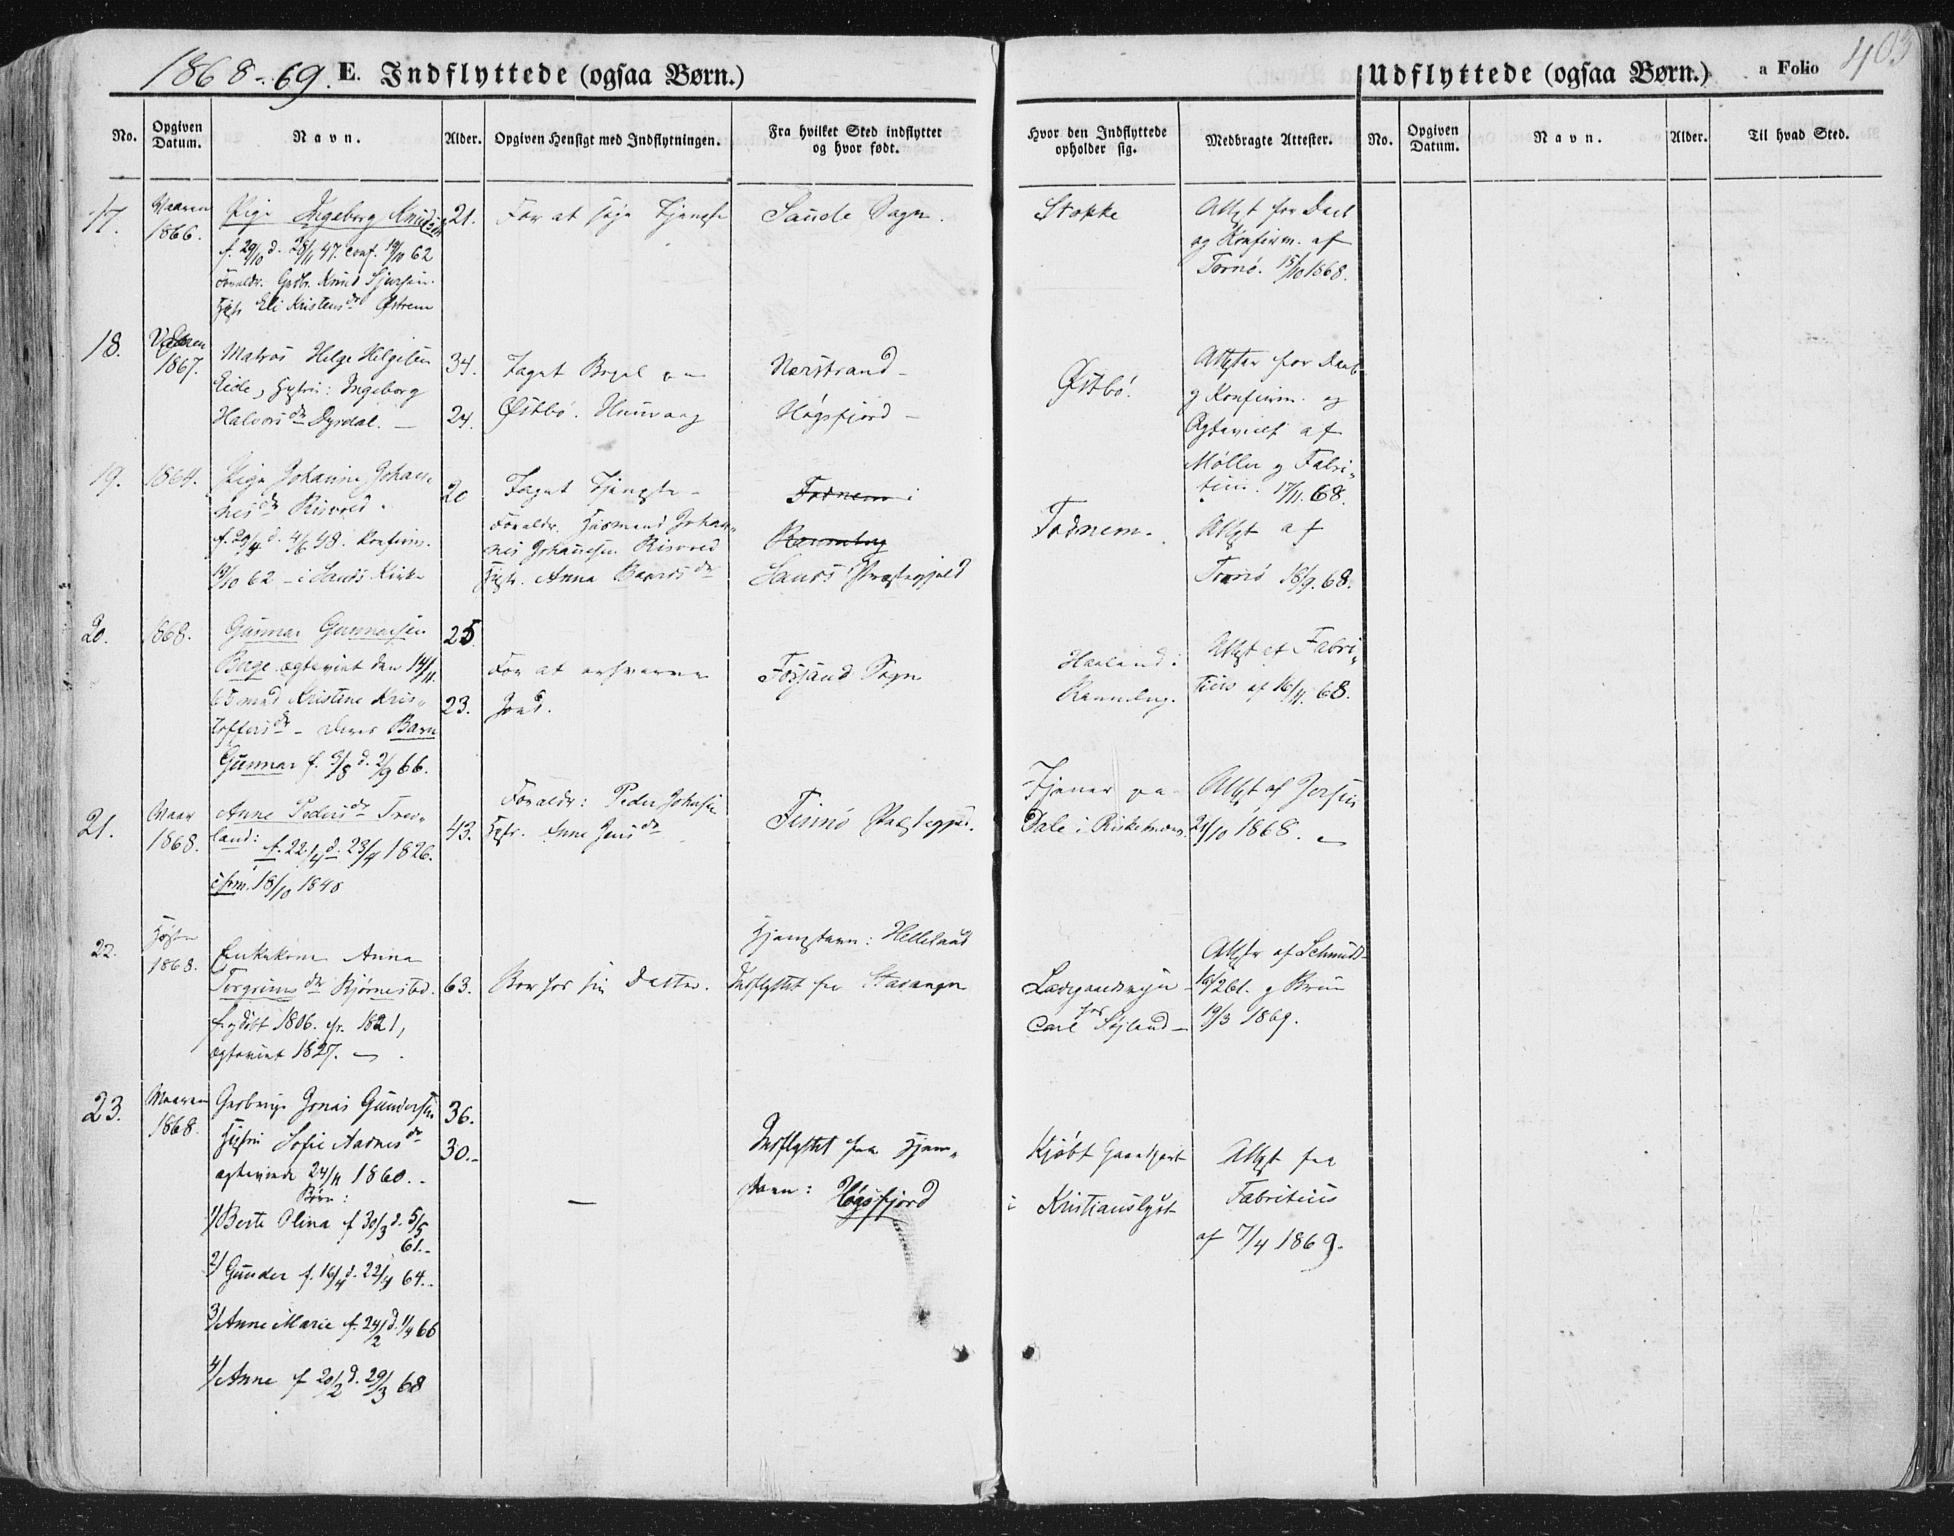 1868-69. E. Indflyttede (ogsaa Børn.)
Udflyttede (ogsaa Børn.) a Folio 403
No. Opgiven Datum. Navn. Alder. Opgiven Hensigt med Indflytningen. Fra hvilket Sted indflyttet og hvor født. Hvor den Indflyttede opholder sig. Medbragte Attester. No. Opgiven Datum. Navn. Alder. Til hvad Sted.
17. Vaaren 1866. Pige Ingeborg Knudsdtr 21. For at søge Tjeneste Sande Sogn. Stokke Attest for Daab
f. 29/10 d. 28/11 47. conf. 19/10 62 og Konfirm. af
Foraldr. Gbr. Knud Sjursen. Tornö. 15/10 1868.
Hustr. Eli Kristensdr Østrem
18. 1867. Matros Helge Helgesen 34. Taget Bopel paa Nerstrand - Østbö. Attester for Daab
Eide, Hustru: Ingeborg og Konfirm. og
Halvorsdr Dyrdal. — 24. Østbö. Hunvaag Högsfjord - Ægteviet af
Møller og Fabri-
tius. 17/11. 68.
19. 1864. Pige Johanne Johan- 20 Taget Tjeneste - Todnem i Todnem. Attest af
nesdr Risvold. Foraldr. Husmand Johan- Tornö 18/9. 68.
f. 29/4 d. 4/6 48. Konfirm. nes Johannesen Risvold
19/10 62 - i Sands Kirke Hustr. Anna Baardsdr Sands Præstegjeld
20. 1868. Gunnar Gunnarsen 25 For at erhverve Forsand Sogn Haaland i Attest af Fabri-
Berge ægteviet den 14/11. tius af 16/11. 68.
65 med Kristine Kris- 23. Jord.
toffersdr - Deres Barn
Gunnar f. 3/8 d. 2/9 66.
21. Vaar 1868. Anne Pedersdr Trev- 43. Foraldr: Peder Johnsen Finnö Præstegjeld. Tjener paa Attest af Jersin
land: f. 22/4 d. 23/4 1826. Hustr. Anne Jensdr Dale i 21/10 1868.
18/10 1840
22. Høsten 1868. Enkekone Anna Hjemstavn: Helleland Attester af Schmidt
Torgrimsdr Bjørnestad. 63. Bor hos sin Datter. Indflyttet fra Stavanger Ladegaardsveien 16/2 61. og Bruun
f. og døbt 1806. cfr. 1821, Carl hos Söyland - 19/3 1869.
ægteviet 1827.
23. Vaaren 1868. Gaardbruger Jonas Gundersen 36. — Indflyttet fra Hjem- Kjöbt Gaardpart Attest fra
Hustru Sofie Aadnesdr 30. stavn: Högsfjord i Kristianslyst Fabritius
ægteviede 24/11 1860. af 7/4 1869.
Børn:
1/ Berte Olina f 30/3 d. 5/5 61.
2/ Gunder f. 16/4 d. 22/4 64.
3/ Anne Marie f. 24/2 d. 1/4 66
4/ Anne f 20/2 d. 29/3 68